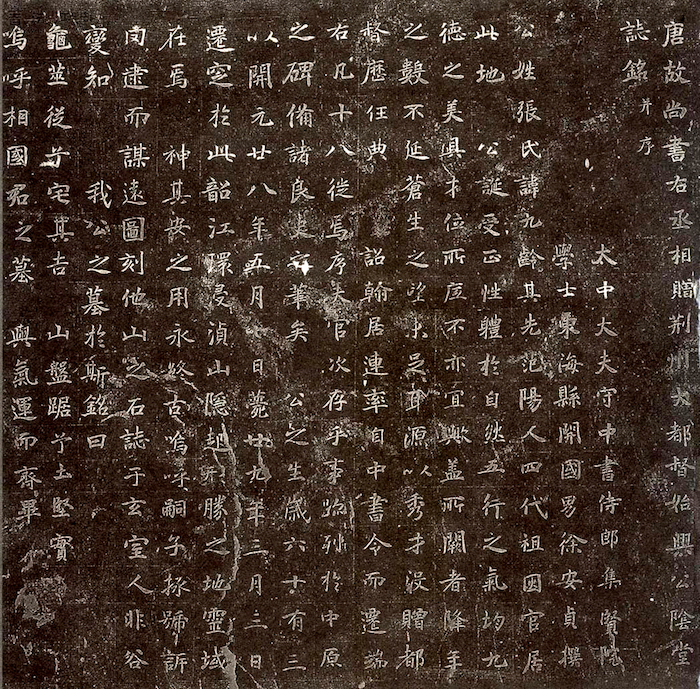 唐故尚書右丞相贈荊州大都督始興公陰堂
誌銘并序
太中大夫守中書侍郎集賢院
學士東海縣開國男徐安貞撰
公姓張氏諱九齡其先范陽人四代祖因官居
此地 公誕受正性體於自然五行之氣均九
德之美具才位所底不亦宜歟蓋所闕者降年
之數不延蒼生之望未足耳源以秀才沒贈都
督歷任典 詔翰居連率自中書令而遷端
右凡十八徙焉序夫官次存乎事迹列於中原
之碑備諸良史之筆矣 公之生歲六十有三
以開元廿八年五月 日薨廿九年三月三日
遷窆於此韶江環浸湞山隱起形勝之地靈域
在焉 神其安之用永終古嗚呼嗣子拯號訴
罔逮而謀遠圖刻他山之石誌于玄室人非谷
變知 我公之墓於斯銘曰
龜筮從兮宅其吉 山盤踞兮土堅實
嗚呼相國君之墓 與氣運而齊畢